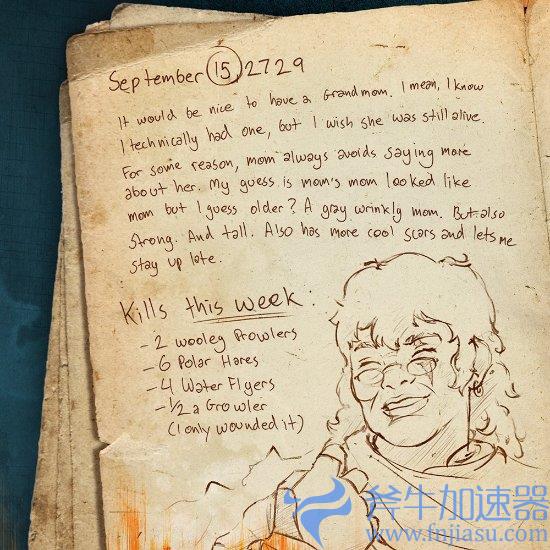 September 15, 2729
It would be nice to have a Grandmom. I mean, I know
I technically had one, but I wish she was still alive.
For some reason, mom always avoids saying more
about her. My guess is mom's mom looked like
mom but I guess older? A gray wrinkly mom. But also
strong. And tall. Also has more cool scars and lets me
stay up late.
Kills this week:
- 2 wooley Prowlers
- 6 Polar Hares
- 4 Water Flyers
- 1/2 a Growler
(I only wounded it)
斧牛加速器
www.fnjiasu.com